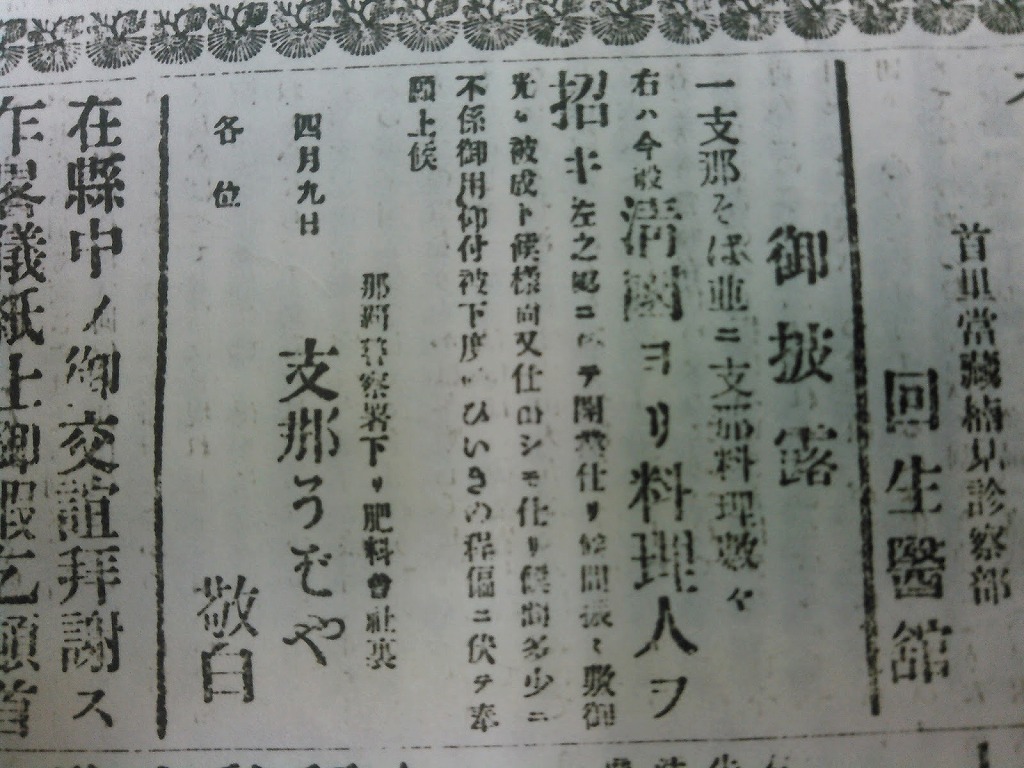 首里當藏楠見診察部
回生醫舘
御披露
一支那そば並ニ支那料理數々
右ハ今般清國ヨリ料理人ヲ
招キ左之處ニ於テ開業仕リ候間振々敷御
光
被成下候樣尚又仕出シモ仕リ候間多少ニ
不係御用仰付被下度
ひいきの程偏ニ伏テ奉
願上候
那覇警察署下リ肥料會社裏
四月九日
支那うどんや
各位
敬白
在縣中ノ御交誼拜謝ス
乍畧儀紙上御暇乞頓首